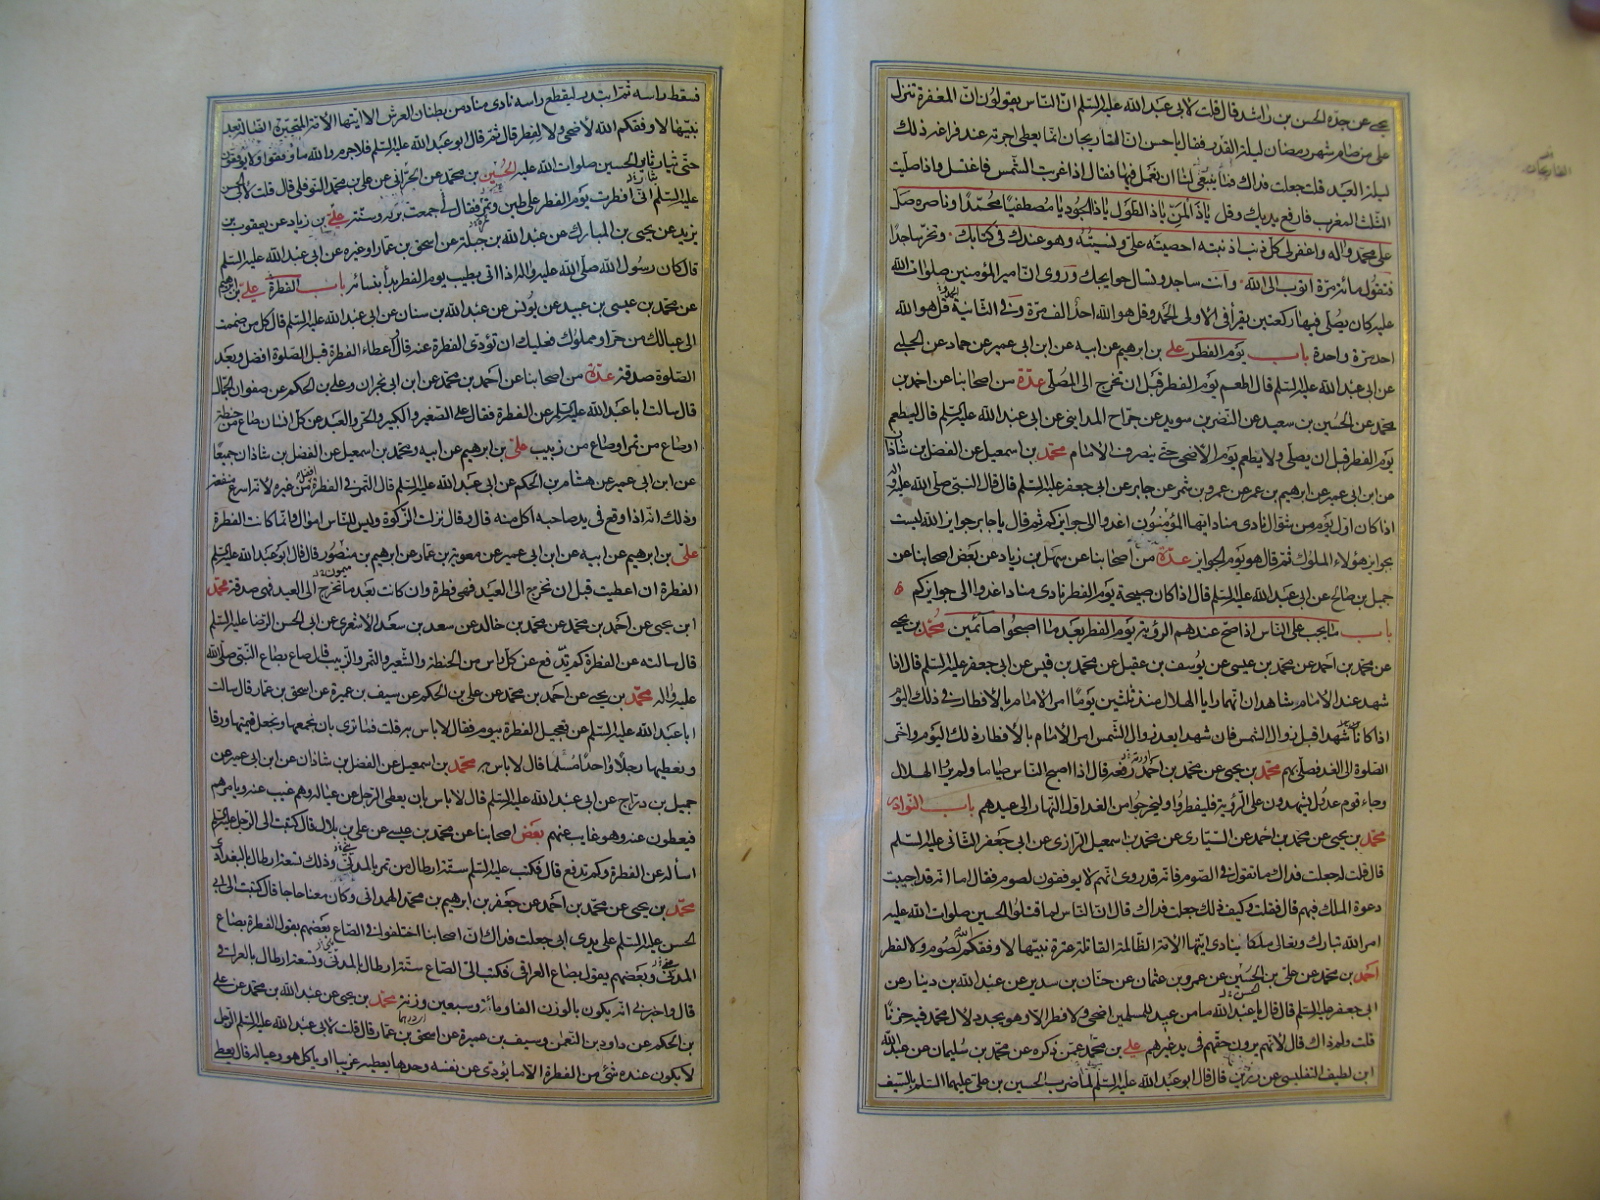 يحيى عن جده الحسن بن راشد قال قلت لابى عبد الله عليه السلم ان الناس يقولون ان المغفرة تنزل
على من صام شهر رمضان ليلة القدر فقال يا حسن ان القاريجان انما يعطى اجرته عند فراغه ذلك
ليلة العيد قلت جعلت فداك فما ينبغى لنا ان نعمل فيها فقال اذا غربت الشمس فاغتسل واذا صليت
الثلث المغرب فارفع يديك وقل يا ذا المن يا ذا الطول يا ذا الجود يا مصطفيا محمدا وناصره صل
على محمد واله واغفر لى كل ذنب اذنبته احصيته على ونسيته وهو عندك فى كتابك وتخر ساجدا
فتقول مائة مرة اتوب الى الله وانت ساجد وتسال حوايجك وروى ان امير المؤمنين صلوات الله
عليه كان يصلى فيها ركعتين يقرأ فى الاولى الحمد وقل هو الله احد الف مرة وفى الثانية قل هو الله
احد مرة واحدة باب يوم الفطر على بن ابرهيم عن ابيه عن ابن ابى عمير عن حماد عن الحلبى
عن ابى عبد الله عليه السلم قال اطعم يوم الفطر قبل ان تخرج الى المصلى عدة من اصحابنا عن احمد بن
محمد عن الحسين بن سعيد عن النضر بن سويد عن جراح المداينى عن ابى عبد الله عليه السلم قال ليطعم
يوم الفطر قبل ان يصلى ولا يطعم يوم الاضحى حتى ينصرف الامام محمد بن اسمعيل عن الفضل بن شاذان
عن ابن ابى عمير عن ابرهيم بن عمر عن عمرو بن شمر عن جابر عن ابى جعفر عليه السلم قال قال النبى صلى الله عليه واله
اذا كان اول يوم من شوال نادى مناد ايها المؤمنون اغدوا الى جوايزكم ثم قال يا جابر جوايز الله ليست
بجوايز هؤلاء الملوك ثم قال هو يوم الجوايز عدة من اصحابنا عن سهل بن زياد عن بعض اصحابنا عن
جميل بن صالح عن ابى عبد الله عليه السلم قال اذا كان صبيحة يوم الفطر نادى مناد اغدوا الى جوايزكم
باب ما يجب على الناس اذا صح عندهم الرؤية يوم الفطر بعد ما اصبحوا صائمين محمد بن يحيى
عن محمد بن احمد عن محمد بن عيسى عن يوسف بن عقيل عن محمد بن قيس عن ابى جعفر عليه السلم قال اذا
شهد عند الامام شاهدان انهما رايا الهلال منذ ثلثين يوما امر الامام بالافطار فى ذلك اليوم
اذا كانا شهدا قبل زوال الشمس فان شهدا بعد زوال الشمس امر الامام بالافطار ذلك اليوم واخر
الصلوة الى الغد فصلى بهم محمد بن يحيى عن محمد بن احمد رفعه قال اذا اصبح الناس صياما ولم يروا الهلال
وجاء قوم عدول يشهدون على الرؤية فليفطروا وليخرجوا من الغد اول النهار الى عيدهم باب النوادر
محمد بن يحيى عن محمد بن احمد عن السيارى عن محمد بن اسمعيل الرازى عن ابى جعفر الثانى عليه السلم
قال قلت له جعلت فداك ما تقول فى الصوم فانه قد روى انهم لا يوفقون لصوم فقال اما انه قد اجيبت
دعوة الملك فيهم قال فقلت وكيف ذلك جعلت فداك قال ان الناس لما قتلوا الحسين صلوات الله عليه
امر الله تبارك وتعالى ملكا ينادى ايتها الامة الظالمة القاتلة عترة نبيها لا وفقكم الله لصوم ولا لفطر
احمد بن محمد عن على بن الحسين عن عمرو بن عثمان عن حنان بن سدير عن عبد الله بن دينار عن
ابى جعفر عليه السلم قال قال يا عبد الله ما من عيد للمسلمين اضحى ولا فطر الا وهو يجدد لال محمد فيه حزنا
قلت ولم ذاك قال لانهم يرون حقهم فى يد غيرهم على بن محمد عمن ذكره عن محمد بن سليمان عن عبد الله
ابن لطيف التفليسى عن رزين قال قال ابو عبد الله عليه السلم لما ضرب الحسين بن على عليهما السلم بالسيف
القاريجان
فسقط راسه ثم ابتدر ليقطع راسه نادى مناد من بطنان العرش الا ايتها الامة المتحيرة الضالة بعد
نبيها لا وفقكم الله لاضحى ولا لفطر قال ثم قال ابو عبد الله عليه السلم فلا جرم والله ما وفقوا ولا يوفقون
حتى يثار ثار الحسين صلوات الله عليه الحسين بن محمد عن الحرانى عن على بن محمد النوفلى قال قلت لابى الحسن
عليه السلم انى افطرت يوم الفطر على طين وتمر فقال لى جمعت بركة وسنة على بن زياد عن يعقوب بن
يزيد عن يحيى بن المبارك عن عبد الله بن جبلة عن اسحق بن عمار او غيره عن ابى عبد الله عليه السلم
قال كان رسول الله صلى الله عليه واله اذا اتى بطيب يوم الفطر بدأ بنسائه باب الفطرة على بن ابرهيم
عن محمد بن عيسى بن عبيد عن يونس عن عبد الله بن سنان عن ابى عبد الله عليه السلم قال كل من ضممت
الى عيالك من حر او مملوك فعليك ان تؤدى الفطرة عنه قال اعطاء الفطرة قبل الصلوة افضل وبعد
الصلوة صدقة عدة من اصحابنا عن احمد بن محمد عن ابن ابى نجران وعلى بن الحكم عن صفوان الجمال
قال سالت ابا عبد الله عليه السلم عن الفطرة فقال على الصغير والكبير والحر والعبد عن كل انسان صاع من حنطة
او صاع من تمر او صاع من زبيب على بن ابرهيم عن ابيه ومحمد بن اسمعيل عن الفضل بن شاذان جميعا
عن ابن ابى عمير عن هشام بن الحكم عن ابى عبد الله عليه السلم قال التمر فى الفطرة افضل من غيره لانه اسرع منفعة
وذلك انه اذا وقع فى يد صاحبه اكل منه قال وقال نزلت الزكوة وليس للناس اموال وانما كانت الفطرة
على بن ابرهيم عن ابيه عن ابن ابى عمير عن معوية بن عمار عن ابرهيم بن منصور قال قال ابو عبد الله عليه السلم
الفطرة ان اعطيت قبل ان تخرج الى العيد فهى فطرة وان كانت بعد ما تخرج الى العيد فهى صدقة محمد
ابن يحيى عن احمد بن محمد عن محمد بن خالد عن سعد بن سعد الاشعرى عن ابى الحسن الرضا عليه السلم
قال سالته عن الفطرة كم تدفع عن كل راس من الحنطة والشعير والتمر والزبيب قال صاع بصاع النبى صلى الله
عليه واله محمد بن يحيى عن احمد بن محمد عن على بن الحكم عن سيف بن عميرة عن اسحق بن عمار قال سالت
ابا عبد الله عليه السلم عن تعجيل الفطرة بيوم فقال لا باس به قلت فما ترى بان نجمعها ونجعل قيمتها ورقا
ونعطيها رجلا واحدا مسلما قال لا باس به محمد بن اسمعيل عن الفضل بن شاذان عن ابن ابى عمير عن
جميل بن دراج عن ابى عبد الله عليه السلم قال لا باس بان يعطى الرجل عن عياله وهم غيب عنه ويامرهم
فيعطون عنه وهو غايب عنهم بعض اصحابنا عن محمد بن عيسى عن على بن بلال قال كتبت الى الرجل عليه السلم
اسأله عن الفطرة وكم تدفع قال فكتب عليه السلم ستة ارطال من تمر بالمدنى وذلك تسعة ارطال بالبغدادى
محمد بن يحيى عن محمد بن احمد عن جعفر بن ابرهيم بن محمد الهمدانى وكان معنا حاجا قال كتبت الى ابى
الحسن عليه السلم على يدى ابى جعلت فداك ان اصحابنا اختلفوا فى الصاع بعضهم يقول الفطرة بصاع
المدنى وبعضهم يقول بصاع العراقى فكتب الى الصاع ستة ارطال بالمدنى وتسعة ارطال بالعراقى
قال واخبرنى انه يكون بالوزن الفا ومائة وسبعين وزنة محمد بن يحيى عن عبد الله بن محمد عن على
بن الحكم عن داود بن النعمن وسيف بن عميرة عن اسحق بن عمار قال قلت لابى عبد الله عليه السلم الرجل
لا يكون عنده شئ من الفطرة الا ما يؤدى عن نفسه وحدها يعطيه غريبا او ياكل هو وعياله قال يعطى